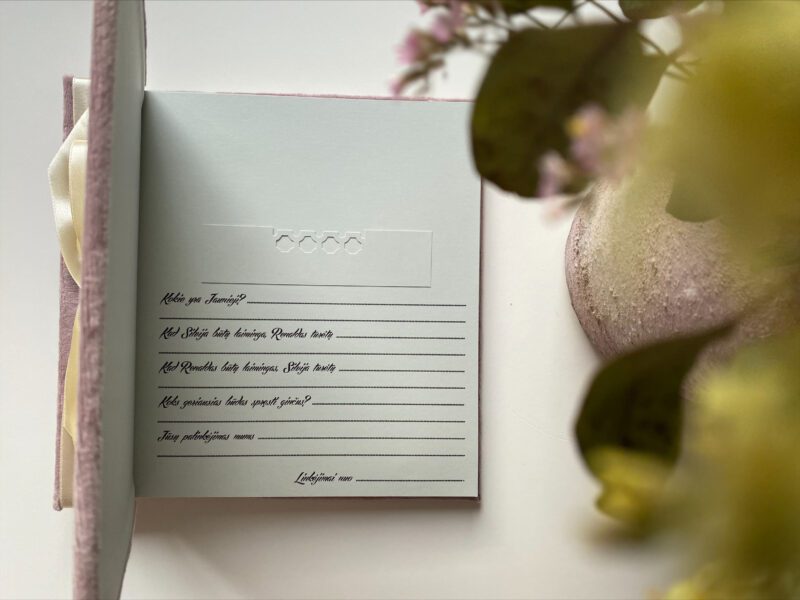 Kokie yra Jaunieji?
Kad Silvija būtų laiminga, Renaldas turėtų
Kad Renaldas būtų laimingas, Silvija turėtų
Koks geriausias būdas spręsti ginčus?
Jūsų palinkėjimas mums
Linkėjimai nuo